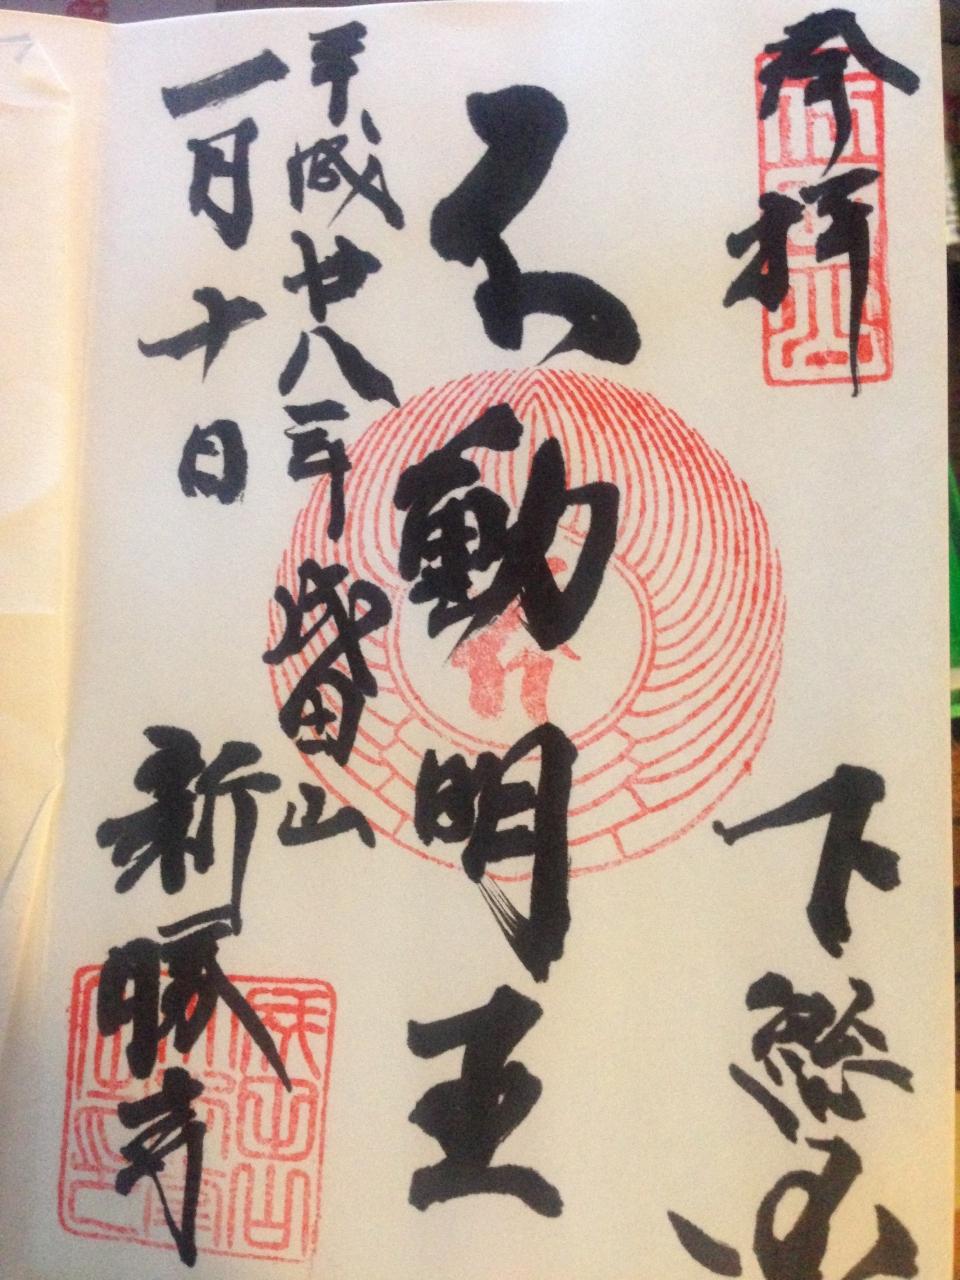 奉拝 下總国
不動明王
平成廿八年 成田山
一月十日 新勝寺